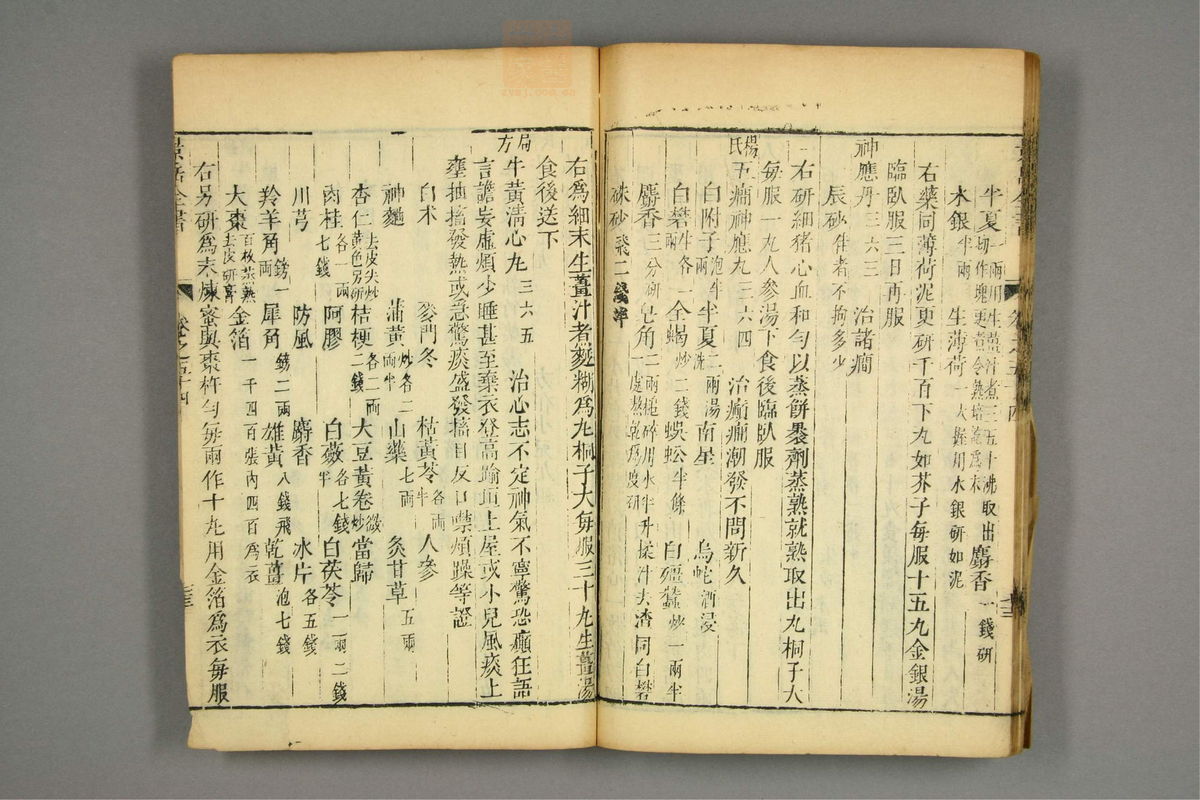 半夏一兩用生薑汁煮三五十沸取出切作塊更煮令熟焙乾爲末 麝香一錢研
水銀半兩 生薄荷一大握用水銀研如泥
右藥同薄荷泥更研千百下丸如芥子每服十五丸金銀湯
臨臥服三日再服
神應丹三六三 治諸癇
辰砂佳者不拘多少
右研細猪心血和勻以蒸餅裹劑蒸熟就熟取出丸桐子大
每服一丸人參湯下食後臨臥服
楊氏五癇神應丸三六四 治癲癇潮發不問新久
白附子炮半兩 半夏二兩湯洗 南星 烏蛇酒浸
白礬各一兩半 全蝎炒二錢 蜈蚣半條 白殭蠶炒一兩半
麝香三分研 皂角二兩槌碎用水半升揉汁去渣同白礬一處熬乾爲度研
硃砂飛二錢半
右爲細末生薑汁煮麫糊爲丸桐子大每服三十丸生薑湯
食後送下
局方牛黃清心丸三六五 治心志不定神氣不寧驚恐癲狂語
言譫妄虛煩少睡甚至棄衣登高踰垣上屋或小兒風痰上
壅抽搐發熱或急驚痰盛發搐目反口噤煩躁等證
白朮 麥門冬 枯黃芩各兩半 人參
神麯 蒲黃炒各二兩半 山藥七兩 炙甘草五兩
杏仁去皮尖炒黃色另研 桔梗各二兩二錢 大豆黃卷微炒 當歸
肉桂各一兩七錢 阿膠 白蘞各七錢半 白茯苓一兩二錢
川芎 防風 麝香 冰片各五錢
羚羊角鎊一兩 犀角鎊二兩 雄黃八錢飛 乾薑泡七錢
大棗百枚蒸熟去皮研膏 金箔一千四百張內四百爲衣
右另研爲末煉蜜與棗杵勻每兩作十丸用金箔爲衣每服
景岳全書 卷之五十四